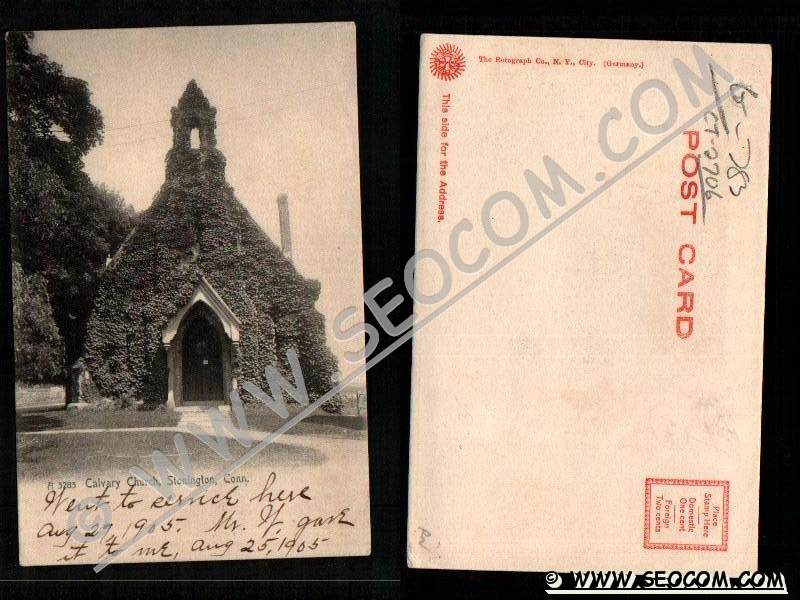 A 3283 Calvary Church, Stonington, Conn.
Went to service here
Aug 27 1905. Mr. W. gave
it to me, Aug 25, 1905
The Rotograph Co., N. Y., City. (Germany.)
This side for the Address.
POST CARD
CT-2706
Place
Stamp Here
Domestic
One cent
Foreign
Two cents
© WWW.SEOCOM.COM
© WWW.SEOCOM.COM
© WWW.SEOCOM.COM